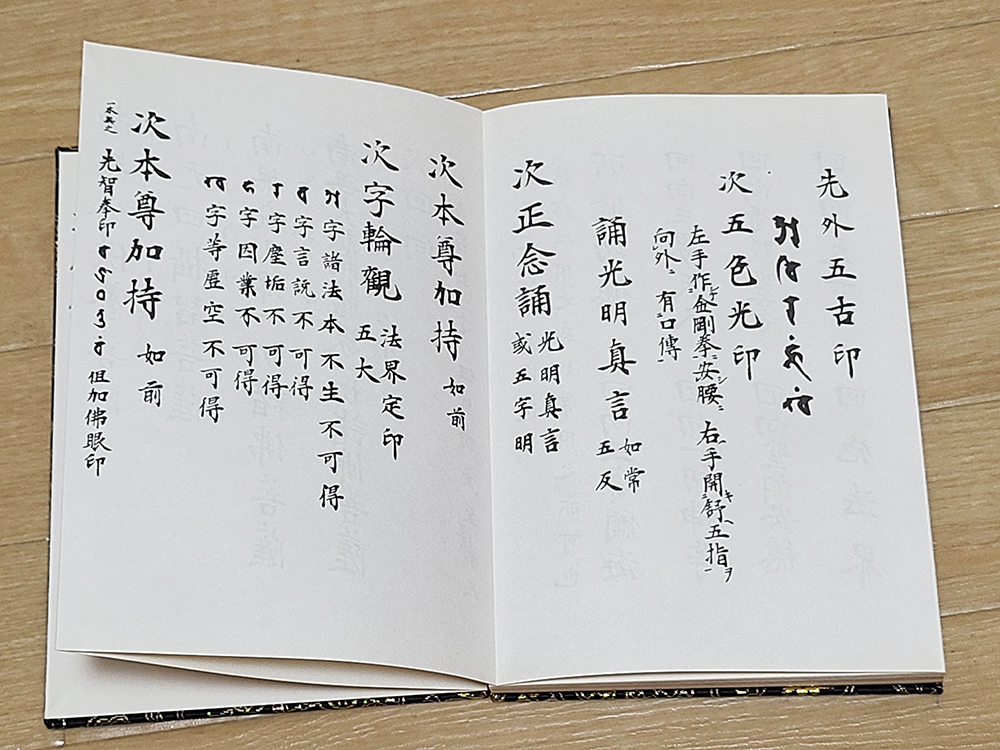 先外五古印
𑖀 𑖪𑖰 𑖨 𑖮𑖳𑖽 𑖏𑖽
次五色光印
左手作金剛拳安腰右手開舒五指
向外有口傳
誦光明真言 如常
五反
次正念誦 光明真言
或五字明
次本尊加持 如前
次字輪觀 法界定印
五大
𑖀字諸法本不生不可得
𑖪字言説不可得
𑖨字塵垢不可得
𑖮字因業不可得
𑖏字等虚空不可得
次本尊加持 如前
先智拳印 但加佛眼印